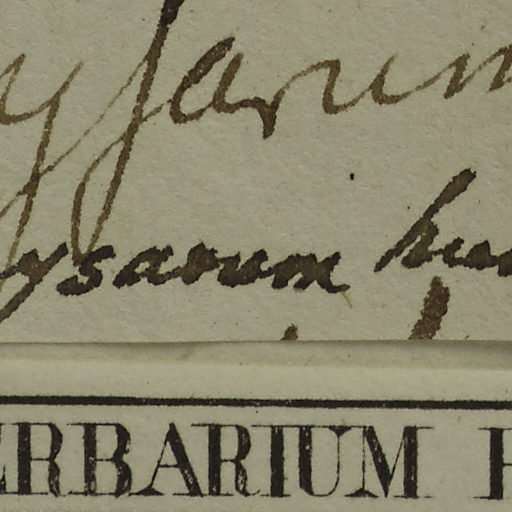 ysarum
ysarum hu
ERBARIUM